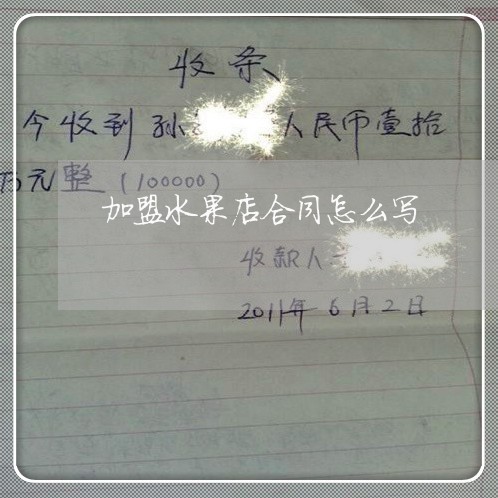 收条
今收到孙 人民币壹拾
万元整（100000）
加盟水果店合同怎么写
收款人
2011年6月2日